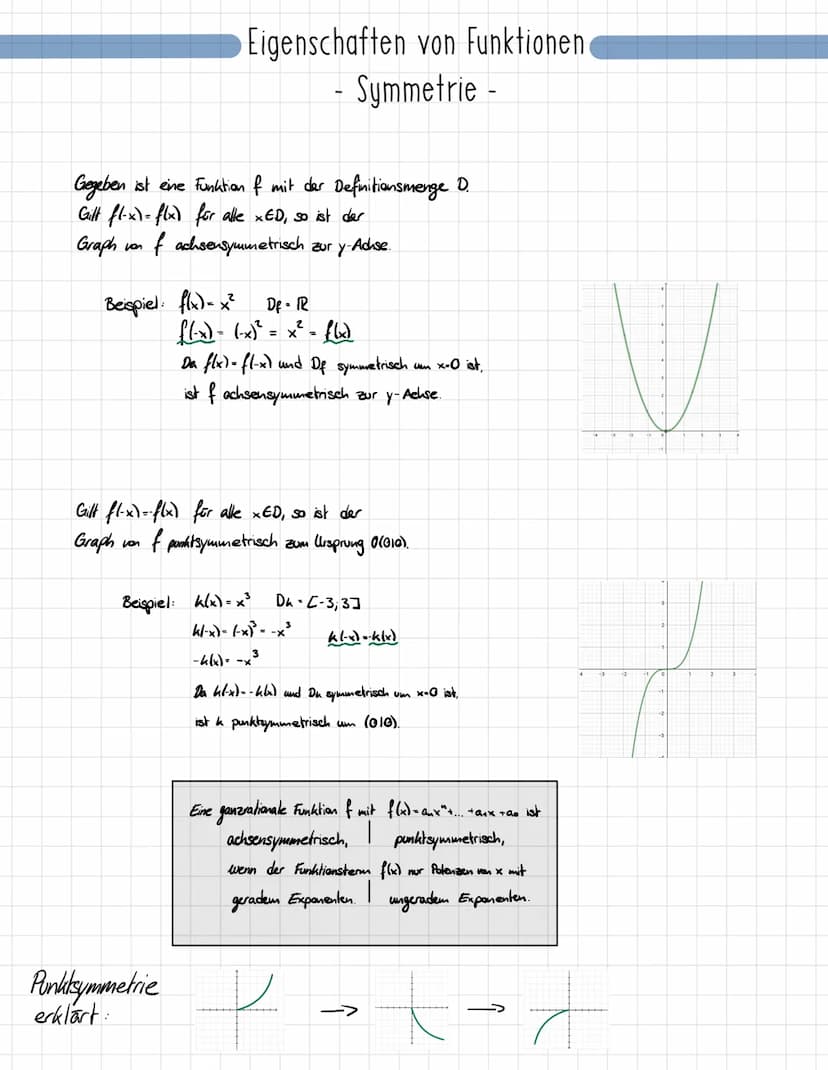 Eigenschaften von Funktionen
- Symmetrie -
Gegeben ist eine Funktion f mit der Definitionsmenge D.
Gilt f(-x) = f(x) für alle x∈D, so ist der
Graph von f achsensymmetrisch zur y-Achse.
Beispiel: f(x) = x² Df = ℝ
f(-x) = (-x)² = x² = f(x)
Da f(x) = f(-x) und Df symmetrisch um x=0 ist,
ist f achsensymmetrisch zur y-Achse.
Gilt f(-x) = -f(x) für alle x∈D, so ist der
Graph von f punktsymmetrisch zum Ursprung O(0|0).
Beispiel: k(x) = x³ Dk = [-3;3]
k(-x) = (-x)³ = -x³ k(-x) = -k(x)
-k(x) = -x³
Da k(-x) = -k(x) und Dk symmetrisch um x=0 ist,
ist k punktsymmetrisch um (0|0).
Eine ganzrationale Funktion f mit f(x) = aₙxⁿ+... +a₁x +a₀ ist
achsensymmetrisch, | punktsymmetrisch,
wenn der Funktionsterm f(x) nur Potenzen von x mit
geradem Exponenten. | ungeradem Exponenten.
Punktsymmetrie
erklärt: